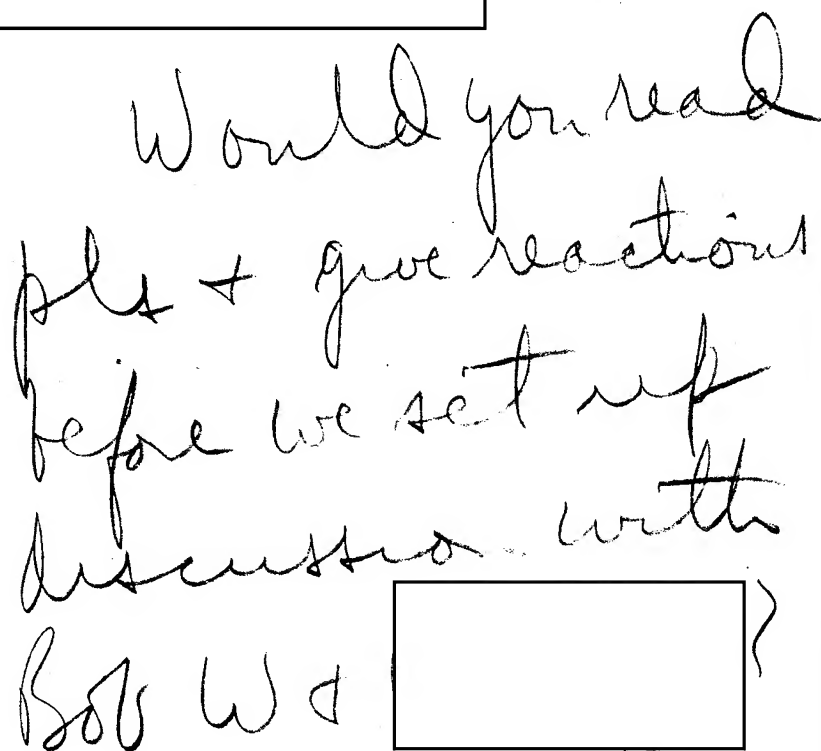 Would you read
pls + give reactions
before we set up
discussion with
Bob W + ?